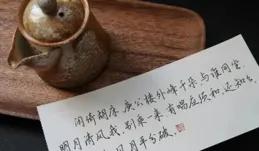 闲倚胡床，庾公楼外峰千朵，与谁同坐，
明月清风我。别乘一来，有唱应须和，还知么，
风月平分破。